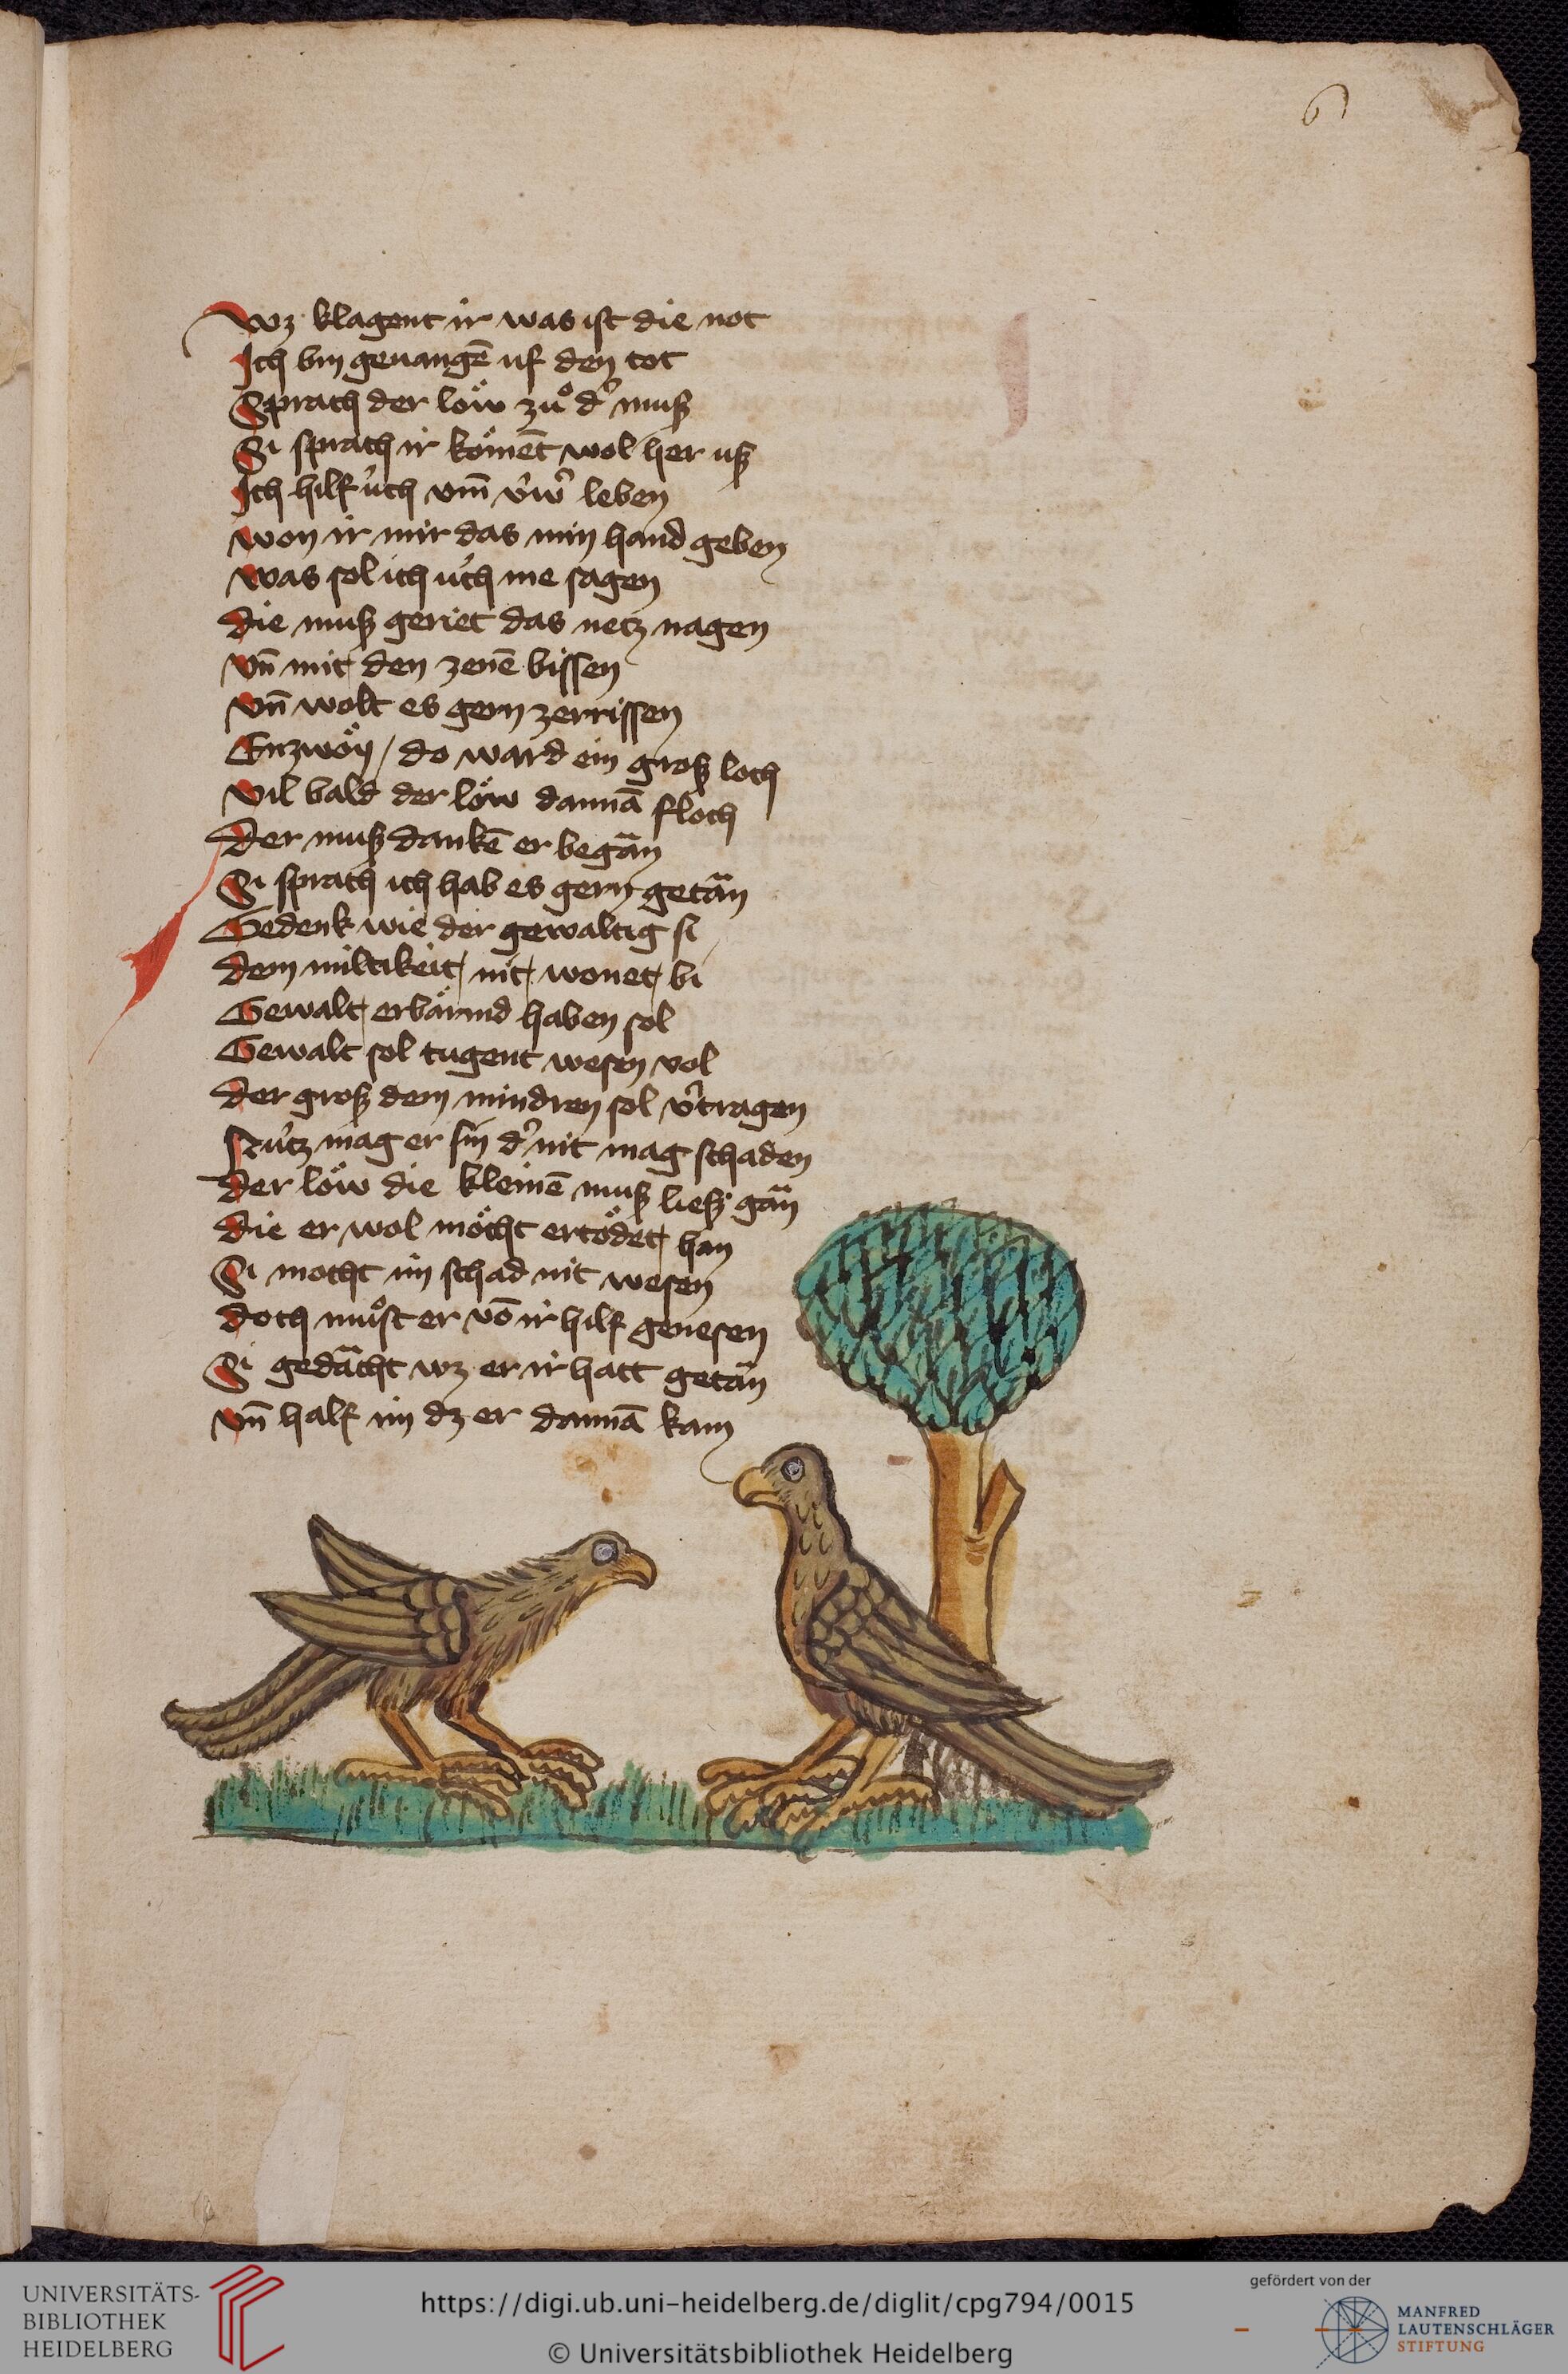 6
Wz klagent ir was ist die not
Ich bin geuangē uf den tot
Sprach der löw zuͦ d' muß
Si sprach ir komēt wol her uß
Ich hilf úch vm̄ v́w' leben
won ir mir das min hand geben
was sol ich úch me sagen
die muß geriet das netz nagen
vn̄ mit den zenē bissen
vn̄ wolt es gern zerrissen
Enzwöy / do ward ein groß loch
vil bald der löw dannā floch
Der muß dankē er began
Si sprach ich hab es gern getän
Gedenk wie der gewaltig si
dem miltikeit nit wonet bi
Gewalt erbärmd haben sol
Gewalt sol tugent wesen vol
der groß dem mindren sol v'tragen
Nútz mag er sin d' nit mag schaden
der löw die kleinē muß ließ gän
die er wol möcht ertödet han
Si mocht im schad nit wesen
doch muͦst er vō ir hilf genesen
Si gedächt wz er ir hatt getän
vn̄ half im dz er dannā kam
UNIVERSITÄTS-
BIBLIOTHEK
HEIDELBERG
https://digi.ub.uni-heidelberg.de/diglit/cpg794/0015
© Universitätsbibliothek Heidelberg
gefördert von der
MANFRED
LAUTENSCHLÄGER
STIFTUNG